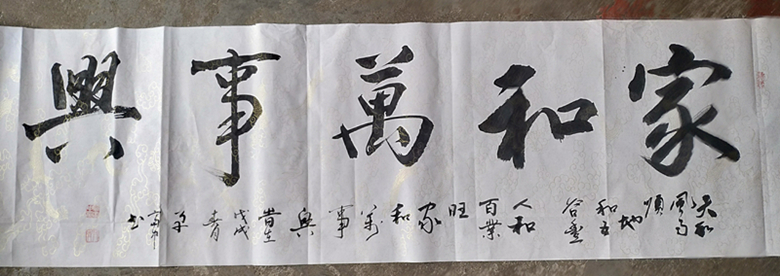 家和萬事興
天和風雨順地和五谷豐人和百業旺家和萬事興
戊戌
书